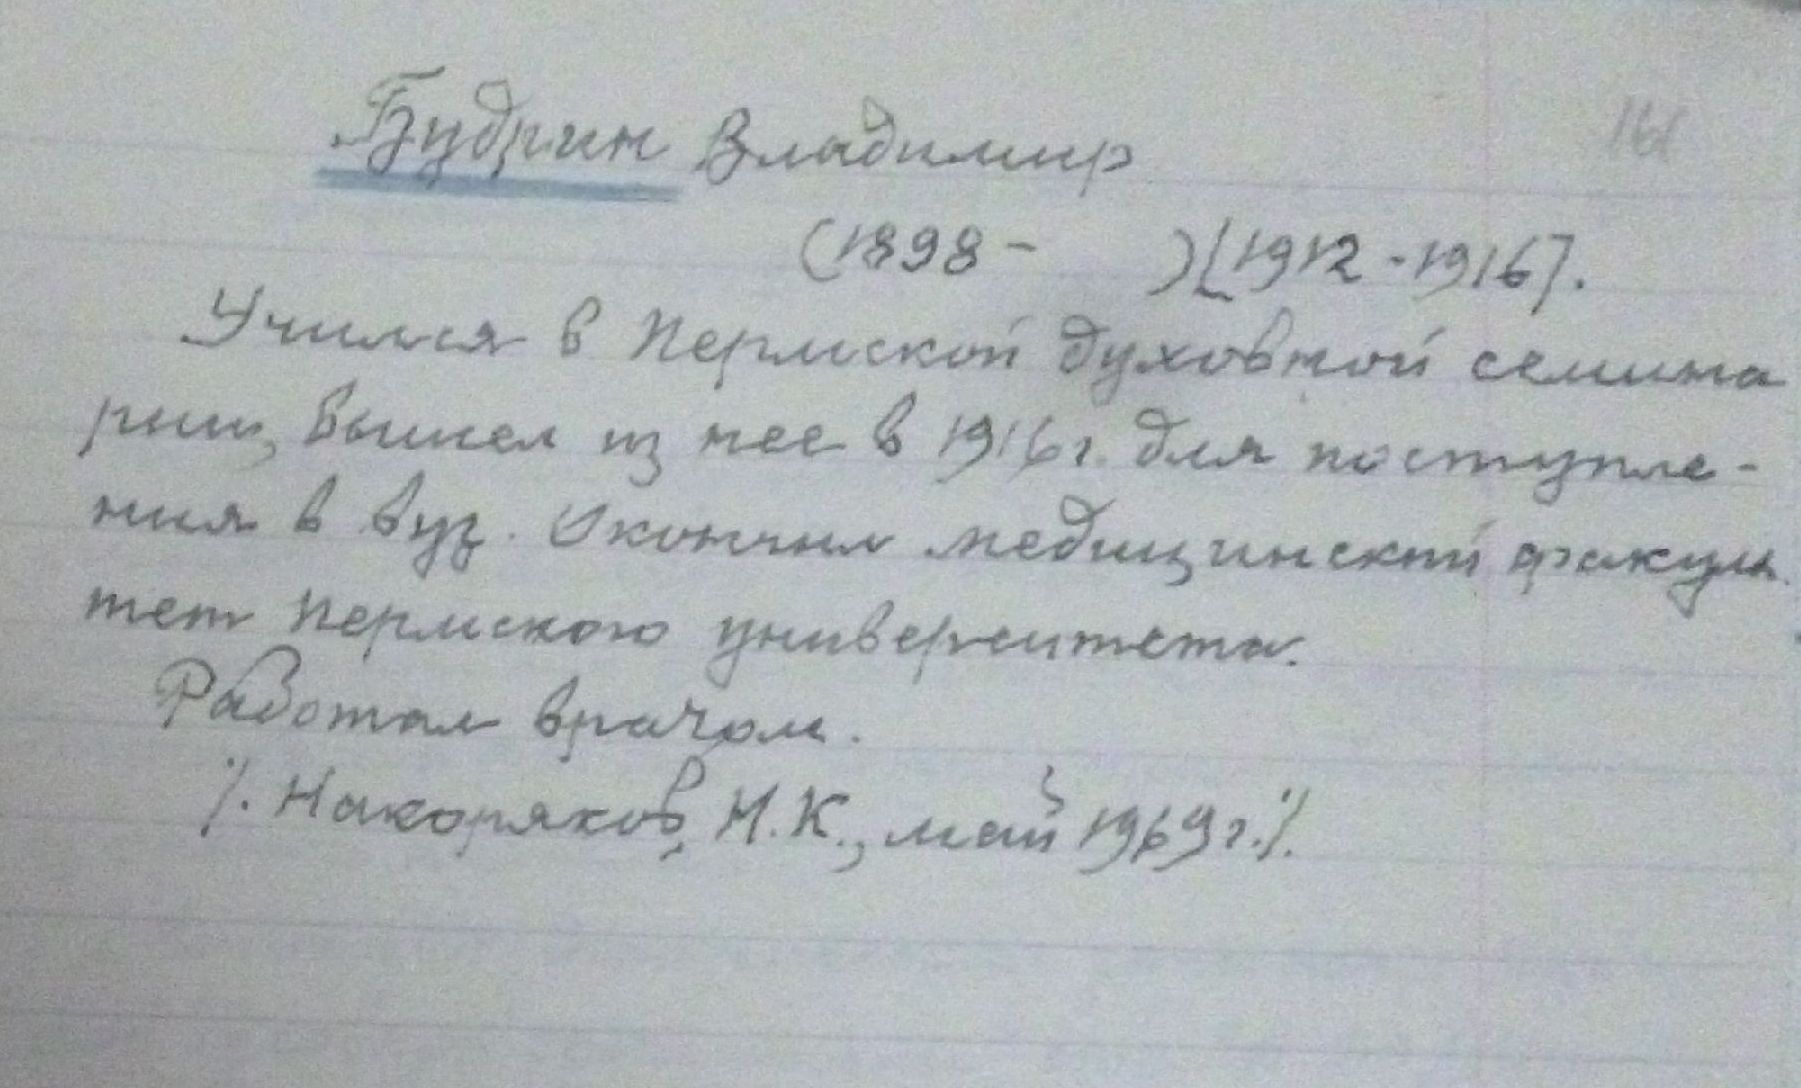 161
Будрин Владимир
(1898 - ) [1912 - 1916].
Учился в Пермской духовной семина
рии, вышел из нее в 1916 г. для поступле-
ния в вуз. Окончил медицинский факуль
тет Пермского университета.
Работал врачом.
/. Накоряков, Н. К., май 1969 г./.